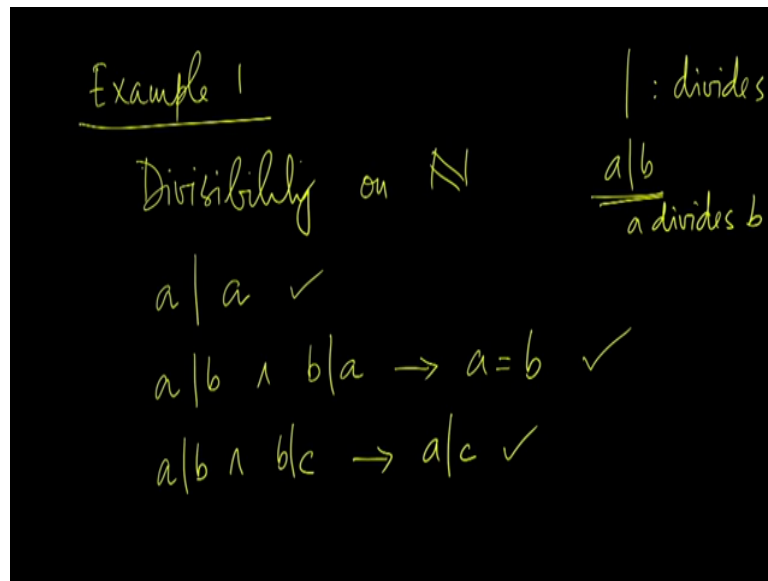 Example 1
| : divides
Divisibility on ℕ
a|b
a divides b
a | a ✓
a|b ∧ b|a → a = b ✓
a|b ∧ b|c → a|c ✓